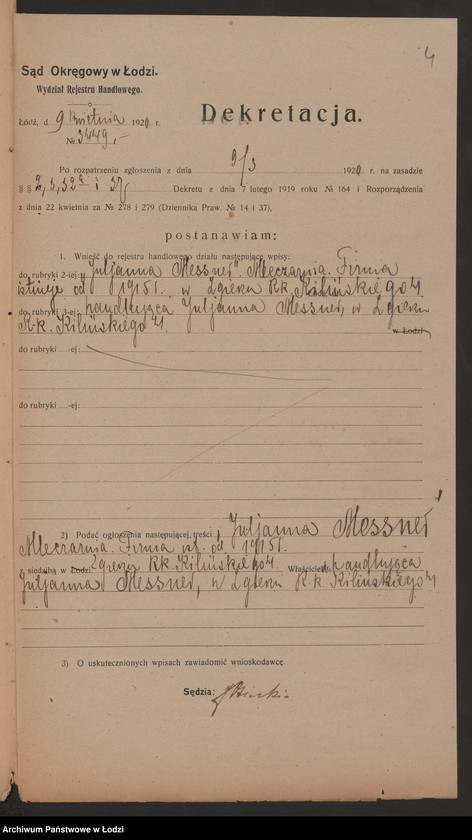 4
Sąd Okręgowy w Łodzi.
Wydział Rejestru Handlowego.
Łódź, d. 9 Kwietnia 1920 r.
№ 3449,-
Dekretacja.
Po rozpatrzeniu zgłoszenia z dnia 9/3 1920 r. na zasadzie
§ § 2, 3, 32a i 37 Dekretu z dnia 7 lutego 1919 roku № 164 i Rozporządzenia
z dnia 22 kwietnia za № 278 i 279 (Dziennika Praw. № 14 i 37),
postanawiam:
1. Wnieść do rejestru handlowego działu następujące wpisy:
do rubryki 2-iej: "Juljanna Messner" Mleczarnia. Firma
istnieje od 1915 r. w Zgierzu Rk. Kilińskiego 4.
do rubryki 3-ej: handlująca Juljanna Messner, w Zgierzu
Rk. Kilińskiego 4. w Łodzi
do rubryki ....-ej:
do rubryki ....-ej:
2) Podać ogłoszenia następującej treści "Juljanna Messner"
Mleczarnia. Firma od 1915 r.
z siedzibą w Łodzi Zgierzu Rk. Kilińskiego 4. Właściciel handlująca
Juljanna Messner, w Zgierzu Rk. Kilińskiego 4
3) O uskutecznionych wpisach zawiadomić wnioskodawcę.
Sędzia:
Archiwum Państwowe w Łodzi